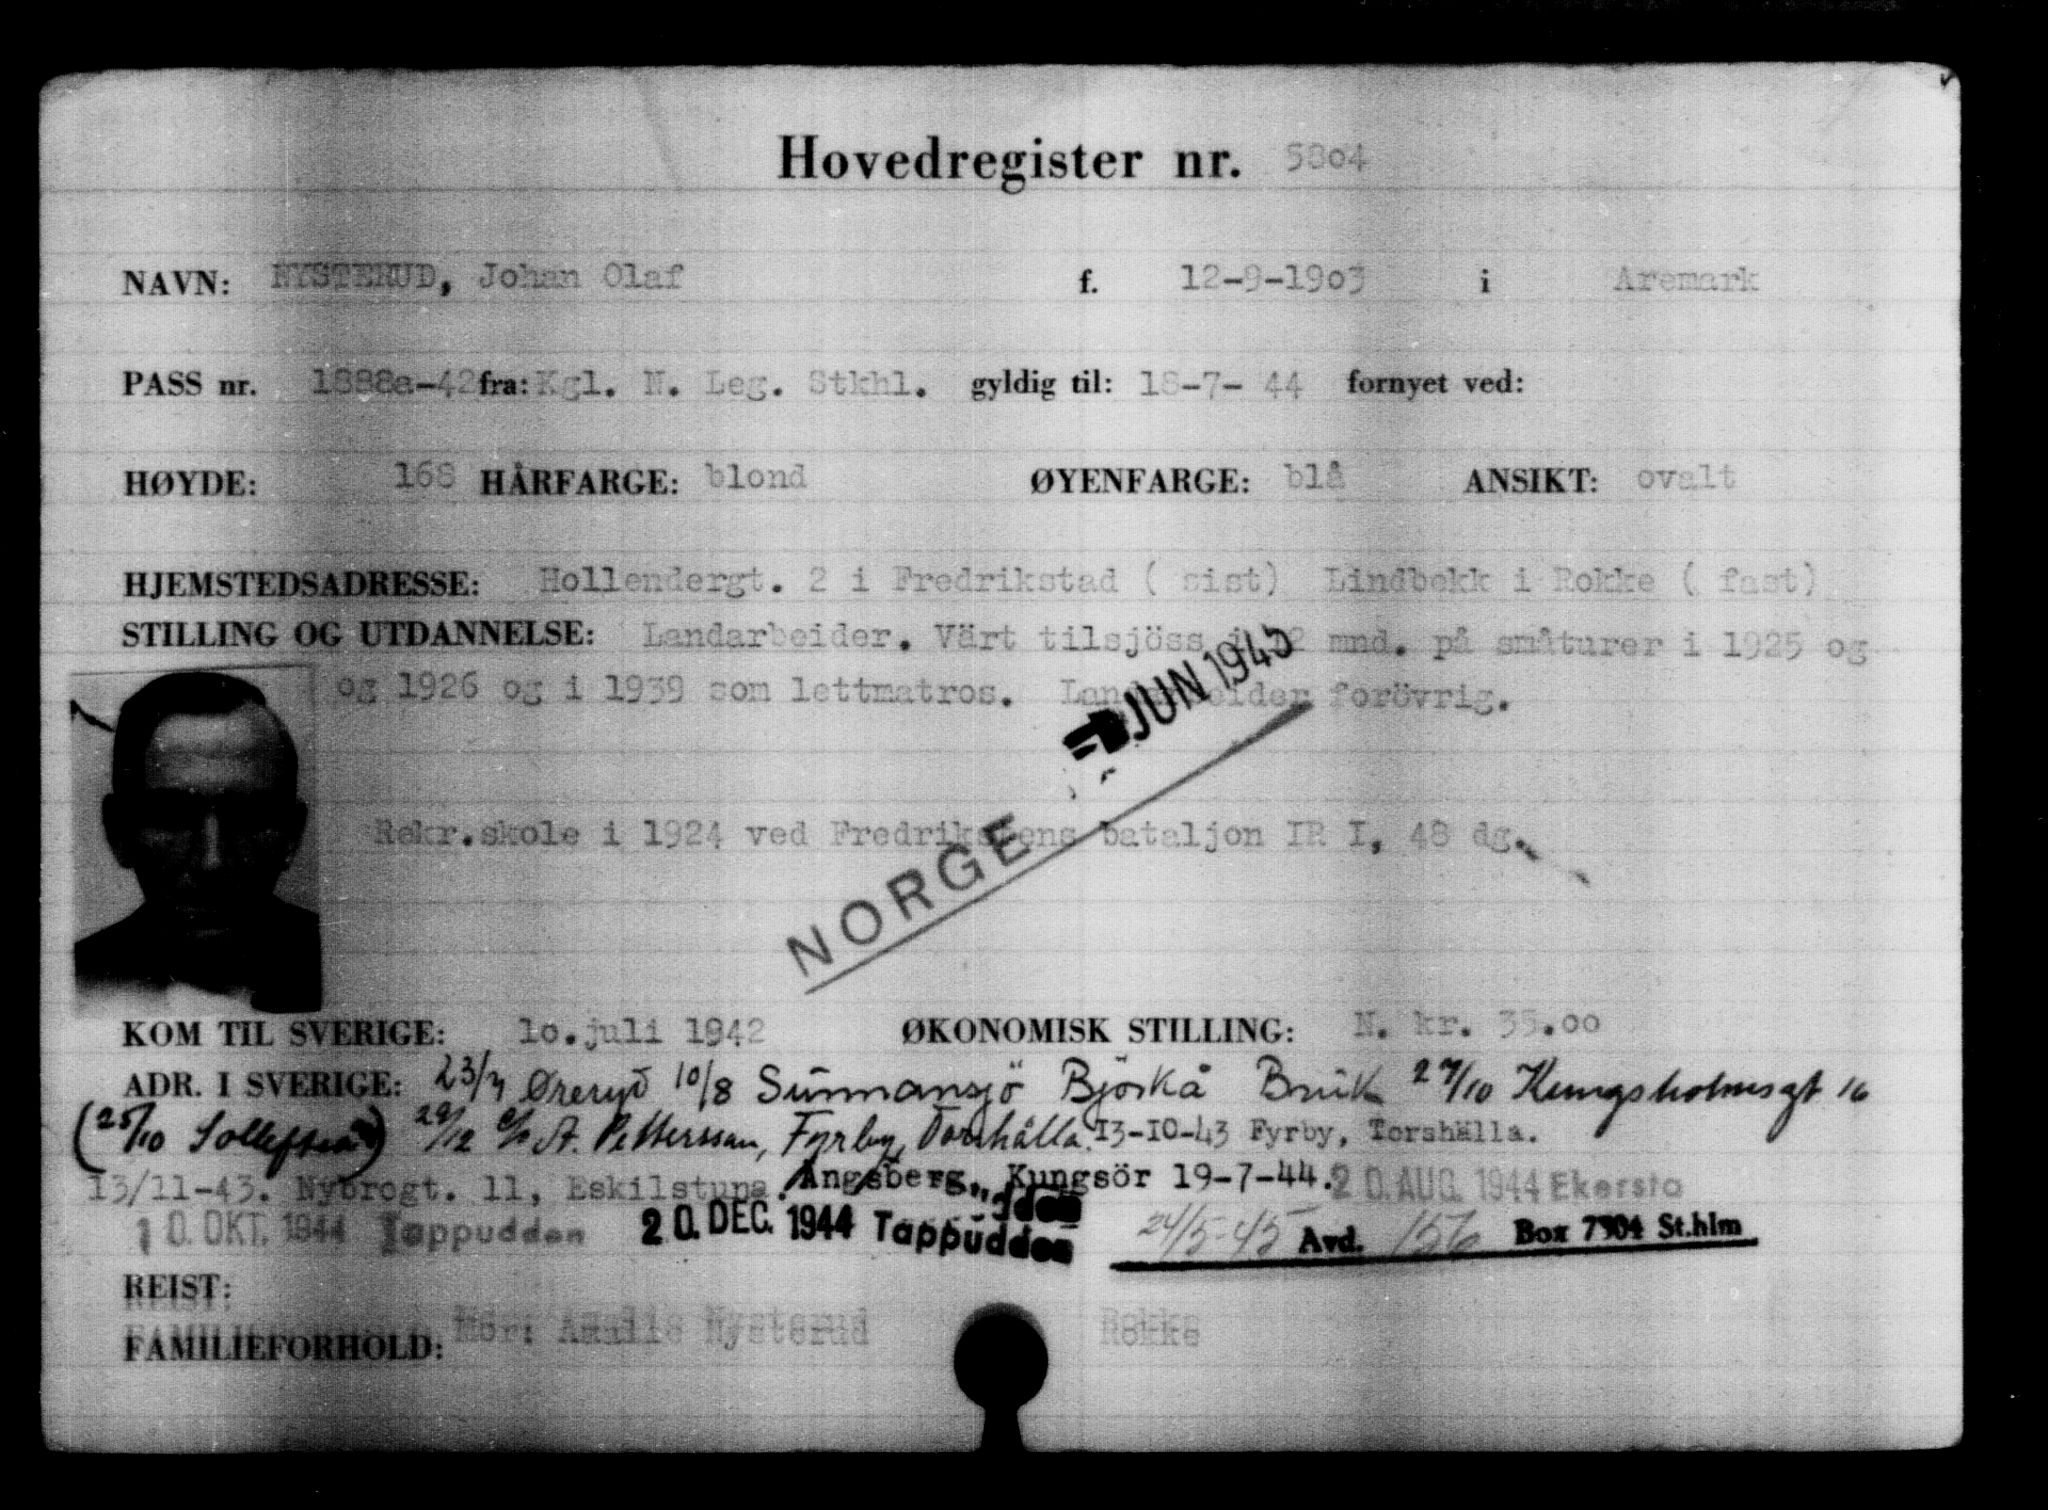 Hovedregister nr. 5804
NAVN: NYSTERUD, Johan Olaf f. 12-9-1903 i Aremark
PASS nr. 1888a-42 fra: Kgl. N. Leg. Stkhl. gyldig til: 18-7- 44 fornyet ved:
HØYDE: 168 HÅRFARGE: blond ØYENFARGE: blå ANSIKT: ovalt
HJEMSTEDSADRESSE: Hollendergt. 2 i Fredrikstad ( sist) Lindbekk i Rokke ( fast)
STILLING OG UTDANNELSE: Landarbeider. Värt tilsjöss i 12 mnd. på småturer i 1925 og
og 1926 og i 1939 som lettmatros. Landarbeider forövrig.
JUN 1945
Rekr.skole i 1924 ved Fredrikstens bataljon IR I, 48 dg.
NORGE
KOM TIL SVERIGE: 1o.juli 1942 ØKONOMISK STILLING: N. kr. 35.oo
ADR. I SVERIGE: 23/7 Øreryd 10/8 Sunnansjö Björkå Bruk 27/10 Kungsholmsgt 16
(25/10 Sollefteå) 29/12 c/o A. Pettersson, Fyrby, Torshälla. 13-10-43 Fyrby, Torshälla.
13/11-43. Nybrogt. 11, Eskilstuna. Ängsberg, Kungsör 19-7-44. 20. AUG. 1944 Ekersto
10. OKT. 1944 Tappudden 20. DEC. 1944 Tappudden 24/5-45 Avd. 156 Box 7904 St.hlm
REIST:
FAMILIEFORHOLD: Mor: Amalie Nysterud Rokke